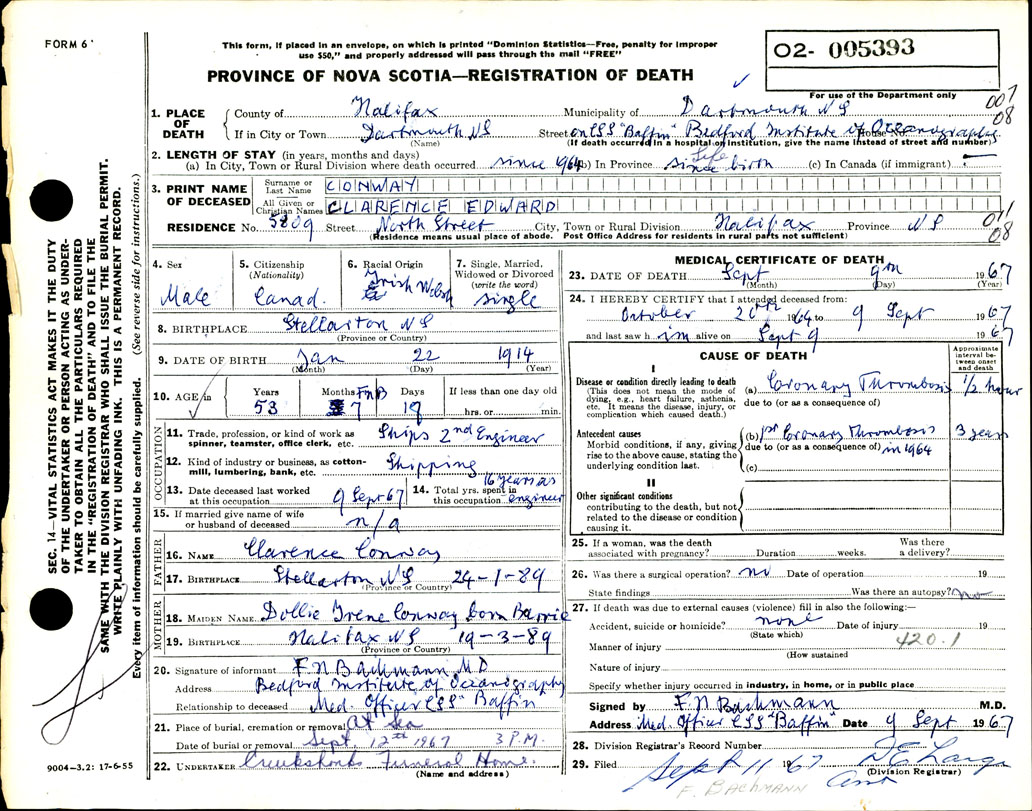 FORM 6
This form, if placed in an envelope, on which is printed "Dominion Statistics—Free, penalty for improper
use $50," and properly addressed will pass through the mail "FREE"
O2- 005393
PROVINCE OF NOVA SCOTIA—REGISTRATION OF DEATH
For use of the Department only
007
08
1. PLACE OF DEATH
County of Halifax Municipality of Dartmouth NS
If in City or Town Dartmouth NS Street on CSS "Baffin" Bedford Institute of Oceanography House No.
(Name) (If death occurred in a hospital or institution, give the name instead of street and number)
2. LENGTH OF STAY (in years, months and days)
(a) In City, Town or Rural Division where death occurred since 1964 (b) In Province Life since birth (c) In Canada (if immigrant) -
3. PRINT NAME OF DECEASED
Surname or Last Name CONWAY
All Given or Christian Names CLARENCE EDWARD
RESIDENCE No. 5809 Street North Street City, Town or Rural Division Halifax Province NS
011
08
(Residence means usual place of abode. Post Office Address for residents in rural parts not sufficient)
4. Sex
Male
5. Citizenship (Nationality)
Canad.
6. Racial Origin
Irish Welsh
7. Single, Married, Widowed or Divorced (write the word)
single
8. BIRTHPLACE Stellarton NS
(Province or Country)
9. DATE OF BIRTH Jan 22 1914
(Month) (Day) (Year)
10. AGE in
Years 53
Months FNB 7
Days 18
If less than one day old
hrs. or min.
OCCUPATION
11. Trade, profession, or kind of work as spinner, teamster, office clerk, etc. Ships 2nd Engineer
12. Kind of industry or business, as cotton-mill, lumbering, bank, etc. Shipping
13. Date deceased last worked at this occupation 9 Sept 67
14. Total yrs. spent in this occupation 16 years as engineer
15. If married give name of wife or husband of deceased n/a
FATHER
16. NAME Clarence Conway
17. BIRTHPLACE Stellarton NS 24-1-89
(Province or Country)
MOTHER
18. MAIDEN NAME Dollie Irene Conway born Barrie
19. BIRTHPLACE Halifax NS 19-3-89
(Province or Country)
20. Signature of informant F N Bachmann MD
Address Bedford Institute of Oceanography
Relationship to deceased Med. Officer CSS Baffin
21. Place of burial, cremation or removal At Sea
Date of burial or removal Sept. 12th 1967 3 P.M.
22. UNDERTAKER Cruikshanks Funeral Home.
(Name and address)
MEDICAL CERTIFICATE OF DEATH
23. DATE OF DEATH Sept 9th 1967
(Month) (Day) (Year)
24. I HEREBY CERTIFY that I attended deceased from:
October 26th 1964 to 9 Sept 1967
and last saw him alive on Sept 9 1967
CAUSE OF DEATH
Approximate interval between onset and death
I
Disease or condition directly leading to death
(This does not mean the mode of dying, e.g., heart failure, asthenia, etc. It means the disease, injury, or complication which caused death.)
(a) Coronary Thrombosis 1/2 hour
due to (or as a consequence of)
Antecedent causes
Morbid conditions, if any, giving rise to the above cause, stating the underlying condition last.
(b) 1st Coronary Thrombosis 3 years
due to (or as a consequence of) in 1964
(c)
II
Other significant conditions
contributing to the death, but not related to the disease or condition causing it.
25. If a woman, was the death associated with pregnancy? Duration weeks. Was there a delivery?
26. Was there a surgical operation? no Date of operation 19
State findings Was there an autopsy? no
27. If death was due to external causes (violence) fill in also the following:—
Accident, suicide or homicide? none Date of injury 19
(State which)
Manner of injury 420.1
(How sustained
Nature of injury
Specify whether injury occurred in industry, in home, or in public place
Signed by F. N Bachmann M.D.
Address Med. Officer CSS "Baffin" Date 9 Sept 1967
28. Division Registrar's Record Number
29. Filed Sept 11 1967
(Division Registrar)
F. BACHMANN
SEC. 14—VITAL STATISTICS ACT MAKES IT THE DUTY
OF THE UNDERTAKER OR PERSON ACTING AS UNDER-
TAKER TO OBTAIN ALL THE PARTICULARS REQUIRED
IN THE "REGISTRATION OF DEATH" AND TO FILE THE
SAME WITH THE DIVISION REGISTRAR WHO SHALL ISSUE THE BURIAL PERMIT.
WRITE PLAINLY WITH UNFADING INK. THIS IS A PERMANENT RECORD.
Every item of information should be carefully supplied. (See reverse side for instructions.)
9004-3.2: 17-6-55